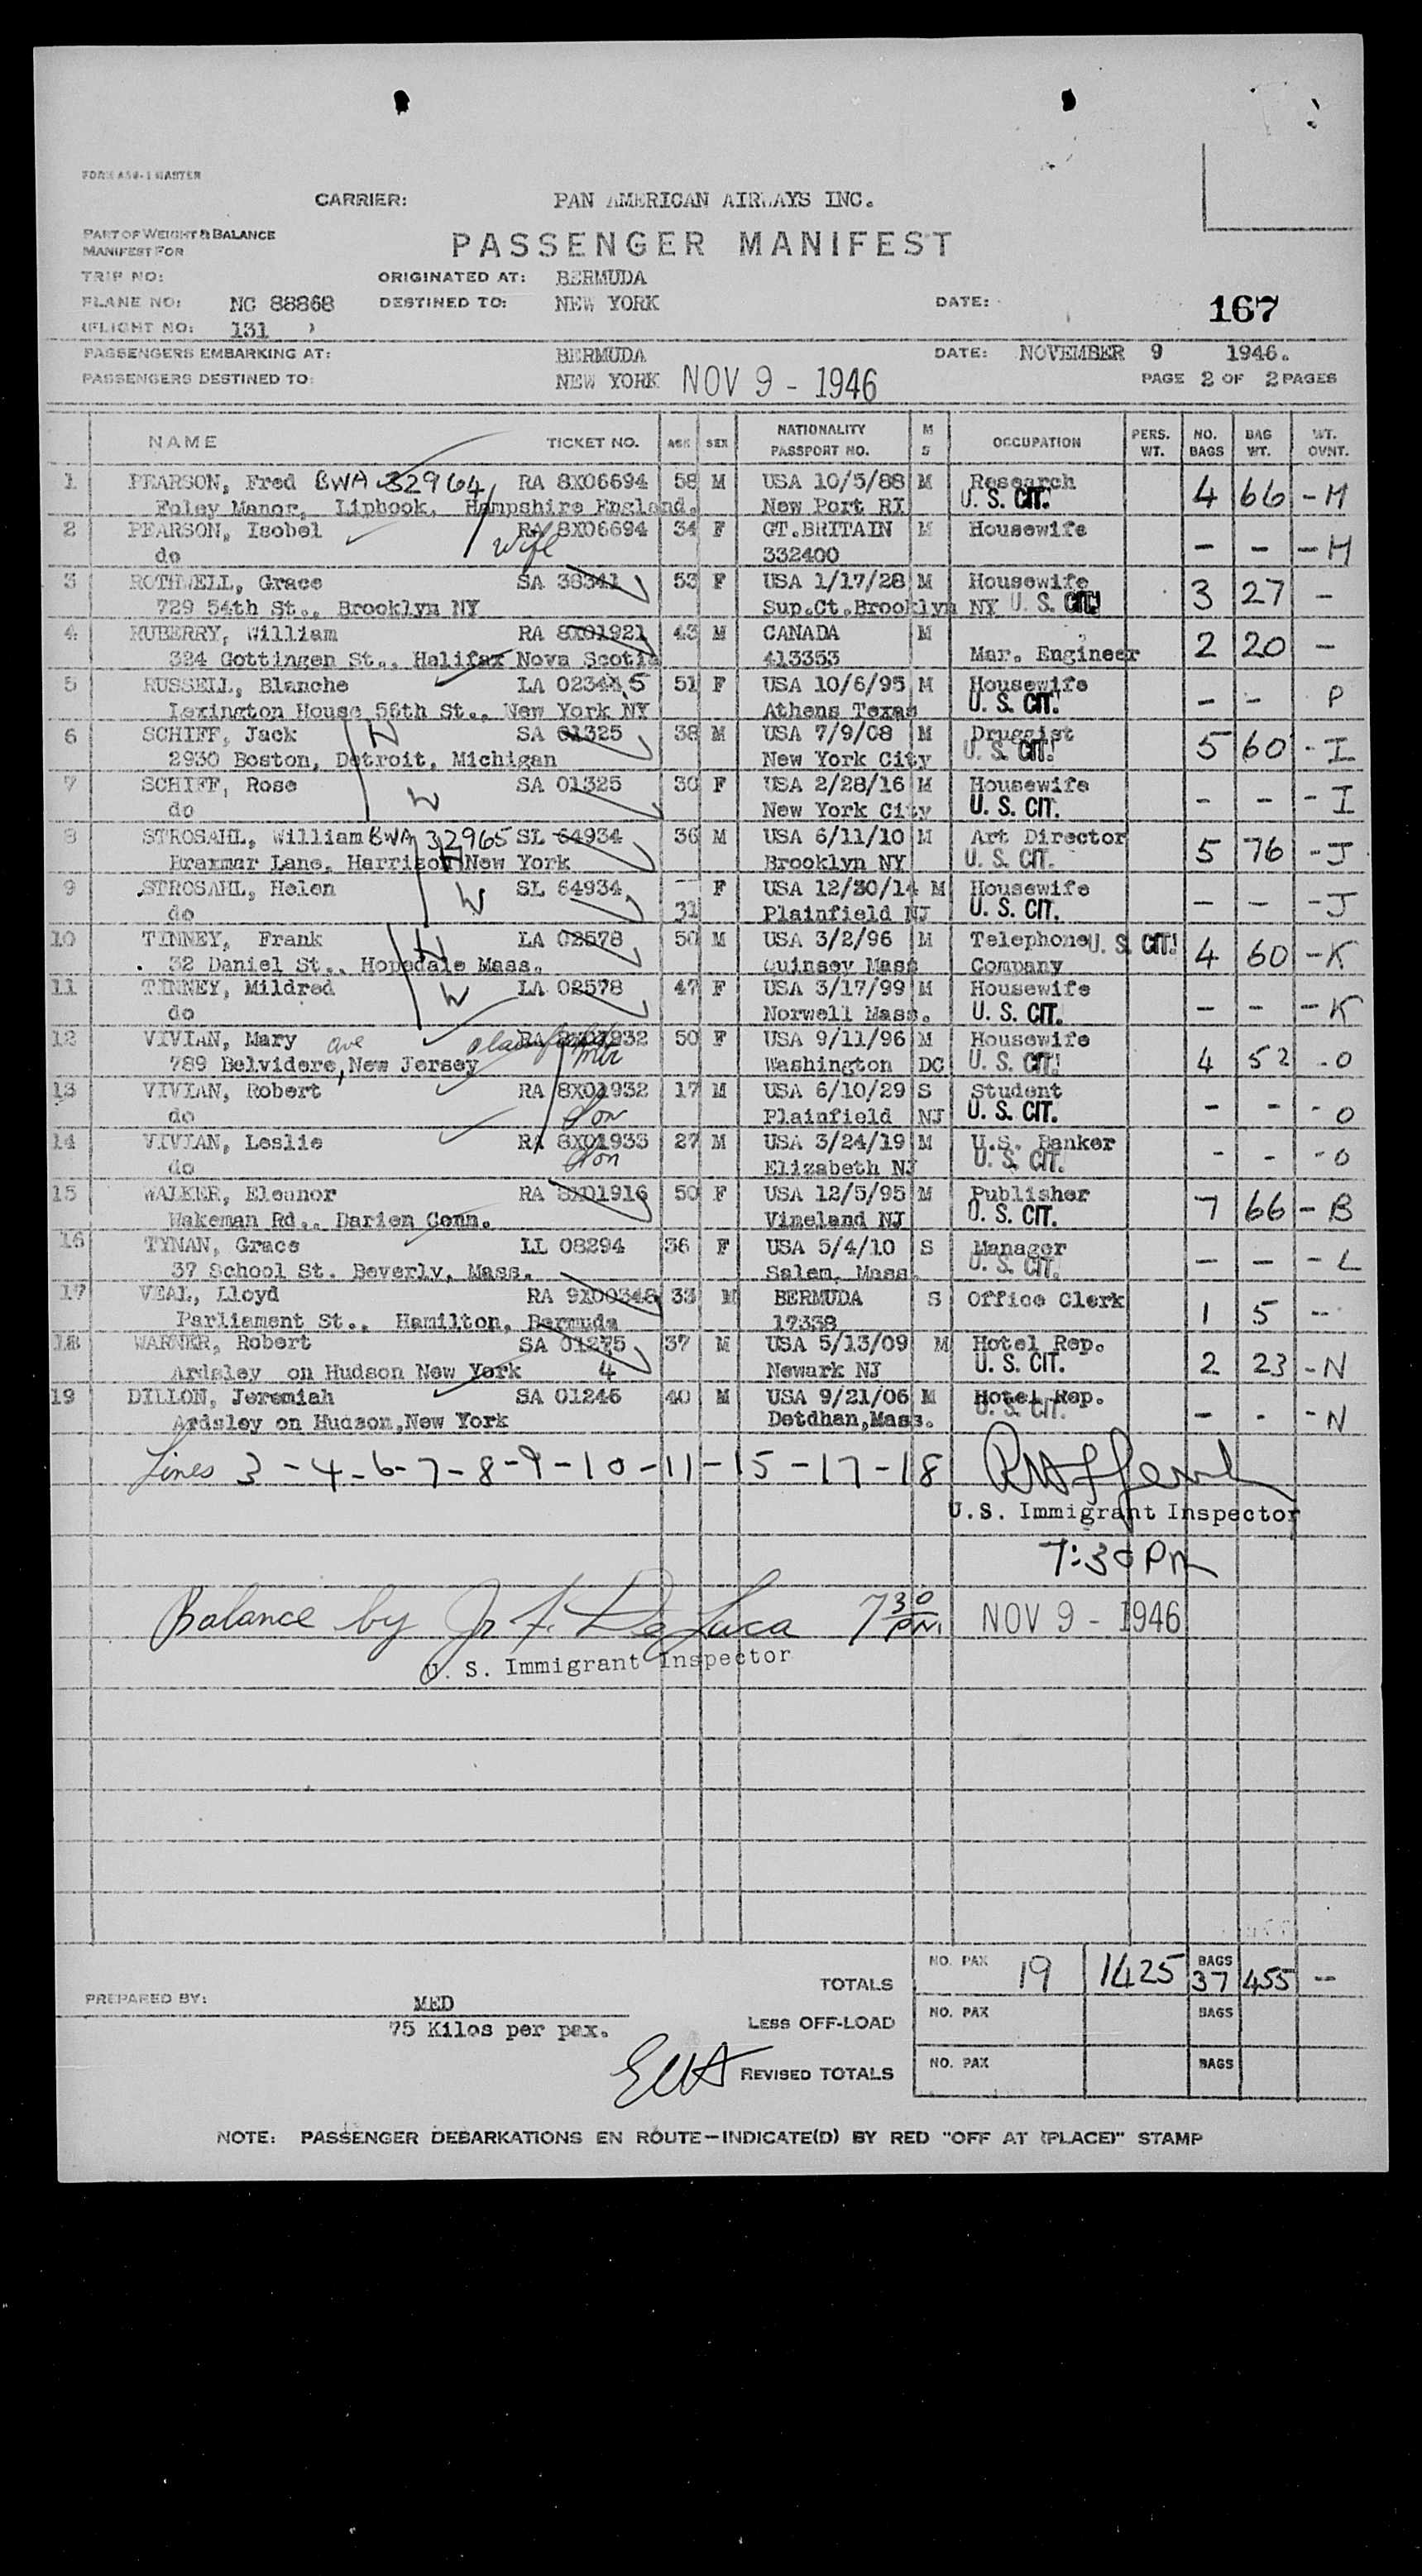 FORM A50-1 MASTER
CARRIER: PAN AMERICAN AIRWAYS INC.
PART OF WEIGHT & BALANCE
MANIFEST FOR
PASSENGER MANIFEST
TRIP NO: ORIGINATED AT: BERMUDA
PLANE NO: NC 88868 DESTINED TO: NEW YORK DATE: 167
(FLIGHT NO: 131 )
PASSENGERS EMBARKING AT: BERMUDA DATE: NOVEMBER 9 1946.
PASSENGERS DESTINED TO: NEW YORK NOV 9 - 1946 PAGE 2 OF 2 PAGES
NAME TICKET NO. AGE SEX NATIONALITY PASSPORT NO. M S OCCUPATION PERS. WT. NO. BAGS BAG WT. WT. OVNT.
1 PEARSON, Fred BWA 32964 RA 8X06694 58 M USA 10/5/88 M Research 4 66 - H
Foley Manor, Liphook, Hampshire England. New Port RI U. S. CIT.
2 PEARSON, Isobel RA 8X06694 34 F GT.BRITAIN M Housewife - - - H
do wife 332400
3 ROTHWELL, Grace SA 38341 53 F USA 1/17/28 M Housewife 3 27 -
729 54th St., Brooklyn NY Sup.Ct.Brooklyn NY U. S. CIT.
4 HUBERRY, William RA 8X01921 43 M CANADA M 2 20 -
324 Gottingen St., Halifax Nova Scotia 413353 Mar. Engineer
5 RUSSELL, Blanche LA 02344 5 51 F USA 10/6/95 M Housewife - - P
Lexington House 56th St., New York NY Athens Texas U. S. CIT.
6 SCHIFF, Jack H SA 01325 38 M USA 7/9/08 M Druggist 5 60 - I
2930 Boston, Detroit, Michigan New York City U. S. CIT.
7 SCHIFF, Rose W SA 01325 30 F USA 2/28/16 M Housewife - - - I
do New York City U. S. CIT.
8 STROSAHL, William BWA 32965 SL 64934 36 M USA 6/11/10 M Art Director 5 76 - J
Braxmar Lane, Harrison New York H Brooklyn NY U. S. CIT.
9 STROSAHL, Helen W SL 64934 F USA 12/30/14 M Housewife - - - J
do 31 Plainfield NJ U. S. CIT.
10 TINNEY, Frank H LA 02578 50 M USA 3/2/96 M Telephone U. S. CIT. 4 60 - K
32 Daniel St., Hopedale Mass. Quinsey Mass Company
11 TINNEY, Mildred W LA 02578 47 F USA 3/17/99 M Housewife - - - K
do Norwell Mass. U. S. CIT.
12 VIVIAN, Mary RA 8X01932 50 F USA 9/11/96 M Housewife 4 52 - O
789 Belvidere, ave New Jersey Mtr Washington DC U. S. CIT.
13 VIVIAN, Robert RA 8X01932 17 M USA 6/10/29 S Student - - - O
do Son Plainfield NJ U. S. CIT.
14 VIVIAN, Leslie RA 8X01933 27 M USA 3/24/19 M U.S. Banker - - - O
do Son Elizabeth NJ U. S. CIT.
15 WALKER, Eleanor RA 8X01916 50 F USA 12/5/95 M Publisher 7 66 - B
Wakeman Rd., Darien Conn. Vineland NJ U. S. CIT.
16 TYNAN, Grace LL 08294 36 F USA 5/4/10 S Manager - - - L
37 School St. Beverly, Mass. Salem, Mass. U. S. CIT.
17 VEAL, Lloyd RA 9X00348 33 M BERMUDA S Office Clerk 1 5 -
Parliament St., Hamilton, Bermuda 17338
18 WARNER, Robert SA 01275 37 M USA 5/13/09 M Hotel Rep. 2 23 - N
Ardsley on Hudson New York 4 Newark NJ U. S. CIT.
19 DILLON, Jeremiah SA 01246 40 M USA 9/21/06 M Hotel Rep. - - - N
Ardsley on Hudson, New York Detdhan, Mass. U. S. CIT.
Lines 3 - 4 - 6 - 7 - 8 - 9 - 10 - 11 - 15 - 17 - 18
U.S. Immigrant Inspector
7:30 PM
Balance by Jr F. DeLuca 7 30 PM. NOV 9 - 1946
U. S. Immigrant Inspector
TOTALS NO. PAX 19 1425 BAGS 37 455 --
PREPARED BY: MED
75 Kilos per pax.
LESS OFF-LOAD NO. PAX BAGS
REVISED TOTALS NO. PAX BAGS
NOTE: PASSENGER DEBARKATIONS EN ROUTE—INDICATE(D) BY RED "OFF AT (PLACE)" STAMP